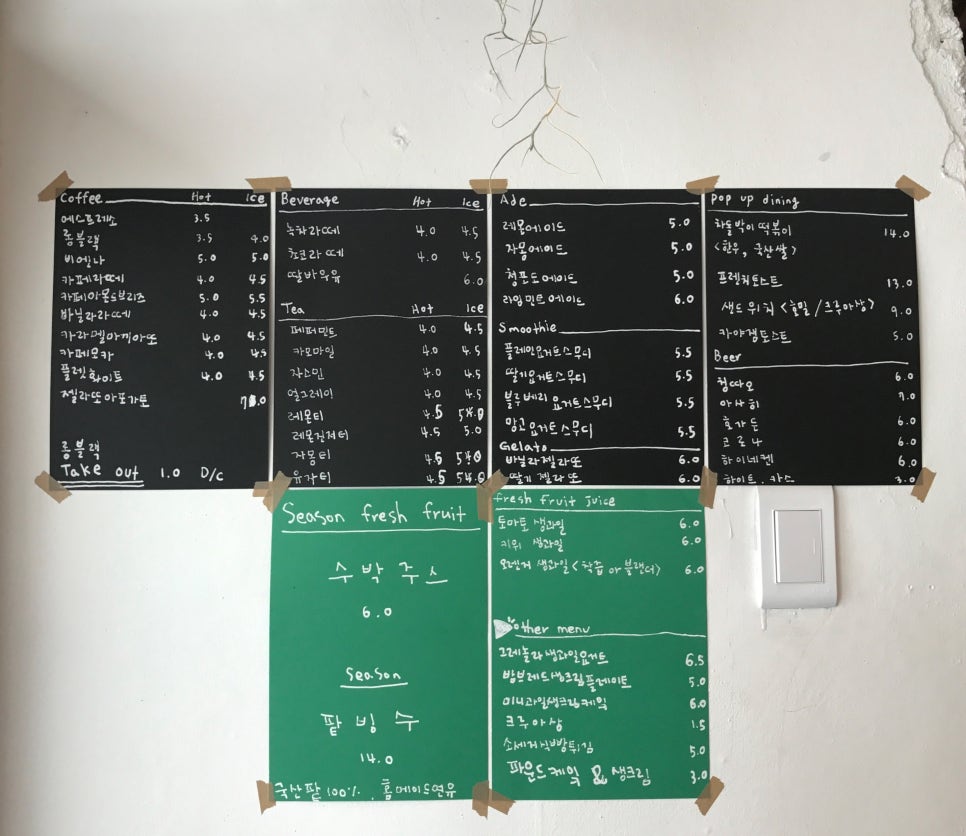 Coffee Hot Ice
에스프레소 3.5
롱블랙 3.5 4.0
비엔나 5.0 5.0
카페라떼 4.0 4.5
카페아몬드브리즈 5.0 5.5
바닐라라떼 4.0 4.5
카라멜마끼아또 4.0 4.5
카페모카 4.0 4.5
플렛화이트 4.0 4.5
젤라또아포가토
롱블랙
Take out 1.0 D/C
Beverage Hot Ice
녹차라떼 4.0 4.5
초코라떼 4.0 4.5
딸바우유 6.0
Tea Hot Ice
페퍼민트 4.0 4.5
카모마일 4.0 4.5
자스민 4.0 4.5
얼그레이 4.0 4.5
레몬티 4.5
레몬진저티 4.5 5.0
자몽티 4.5
유자티 4.5
Ade
레몬에이드 5.0
자몽에이드 5.0
청포도에이드 5.0
라임민트에이드 6.0
Smoothie
플레인요거트스무디 5.5
딸기요거트스무디 5.5
블루베리요거트스무디 5.5
망고요거트스무디 5.5
Gelato
바닐라젤라또 6.0
딸기젤라또 6.0
Pop up dining
차돌박이떡볶이 14.0
<한우, 국산쌀>
프렌치토스트 13.0
샌드위치 <호밀/크루아상> 9.0
카야잼토스트 5.0
Beer
칭따오 6.0
아사히 7.0
호가든 6.0
코로나 6.0
하이네켄 6.0
하이트.카스 3.0
Season fresh fruit
수박주스
6.0
Season
팥빙수
14.0
국산팥 100%. 홈메이드연유
fresh fruit juice
토마토 생과일 6.0
키위 생과일 6.0
오렌지 생과일<착즙 or 블랜더> 6.0
other menu
그레놀라생과일요거트 6.5
밤브레드생크림플레이트 5.0
미니과일생크림케익 6.0
크루아상 1.5
소세지식빵튀김 5.0
파운드케익 & 생크림 3.0